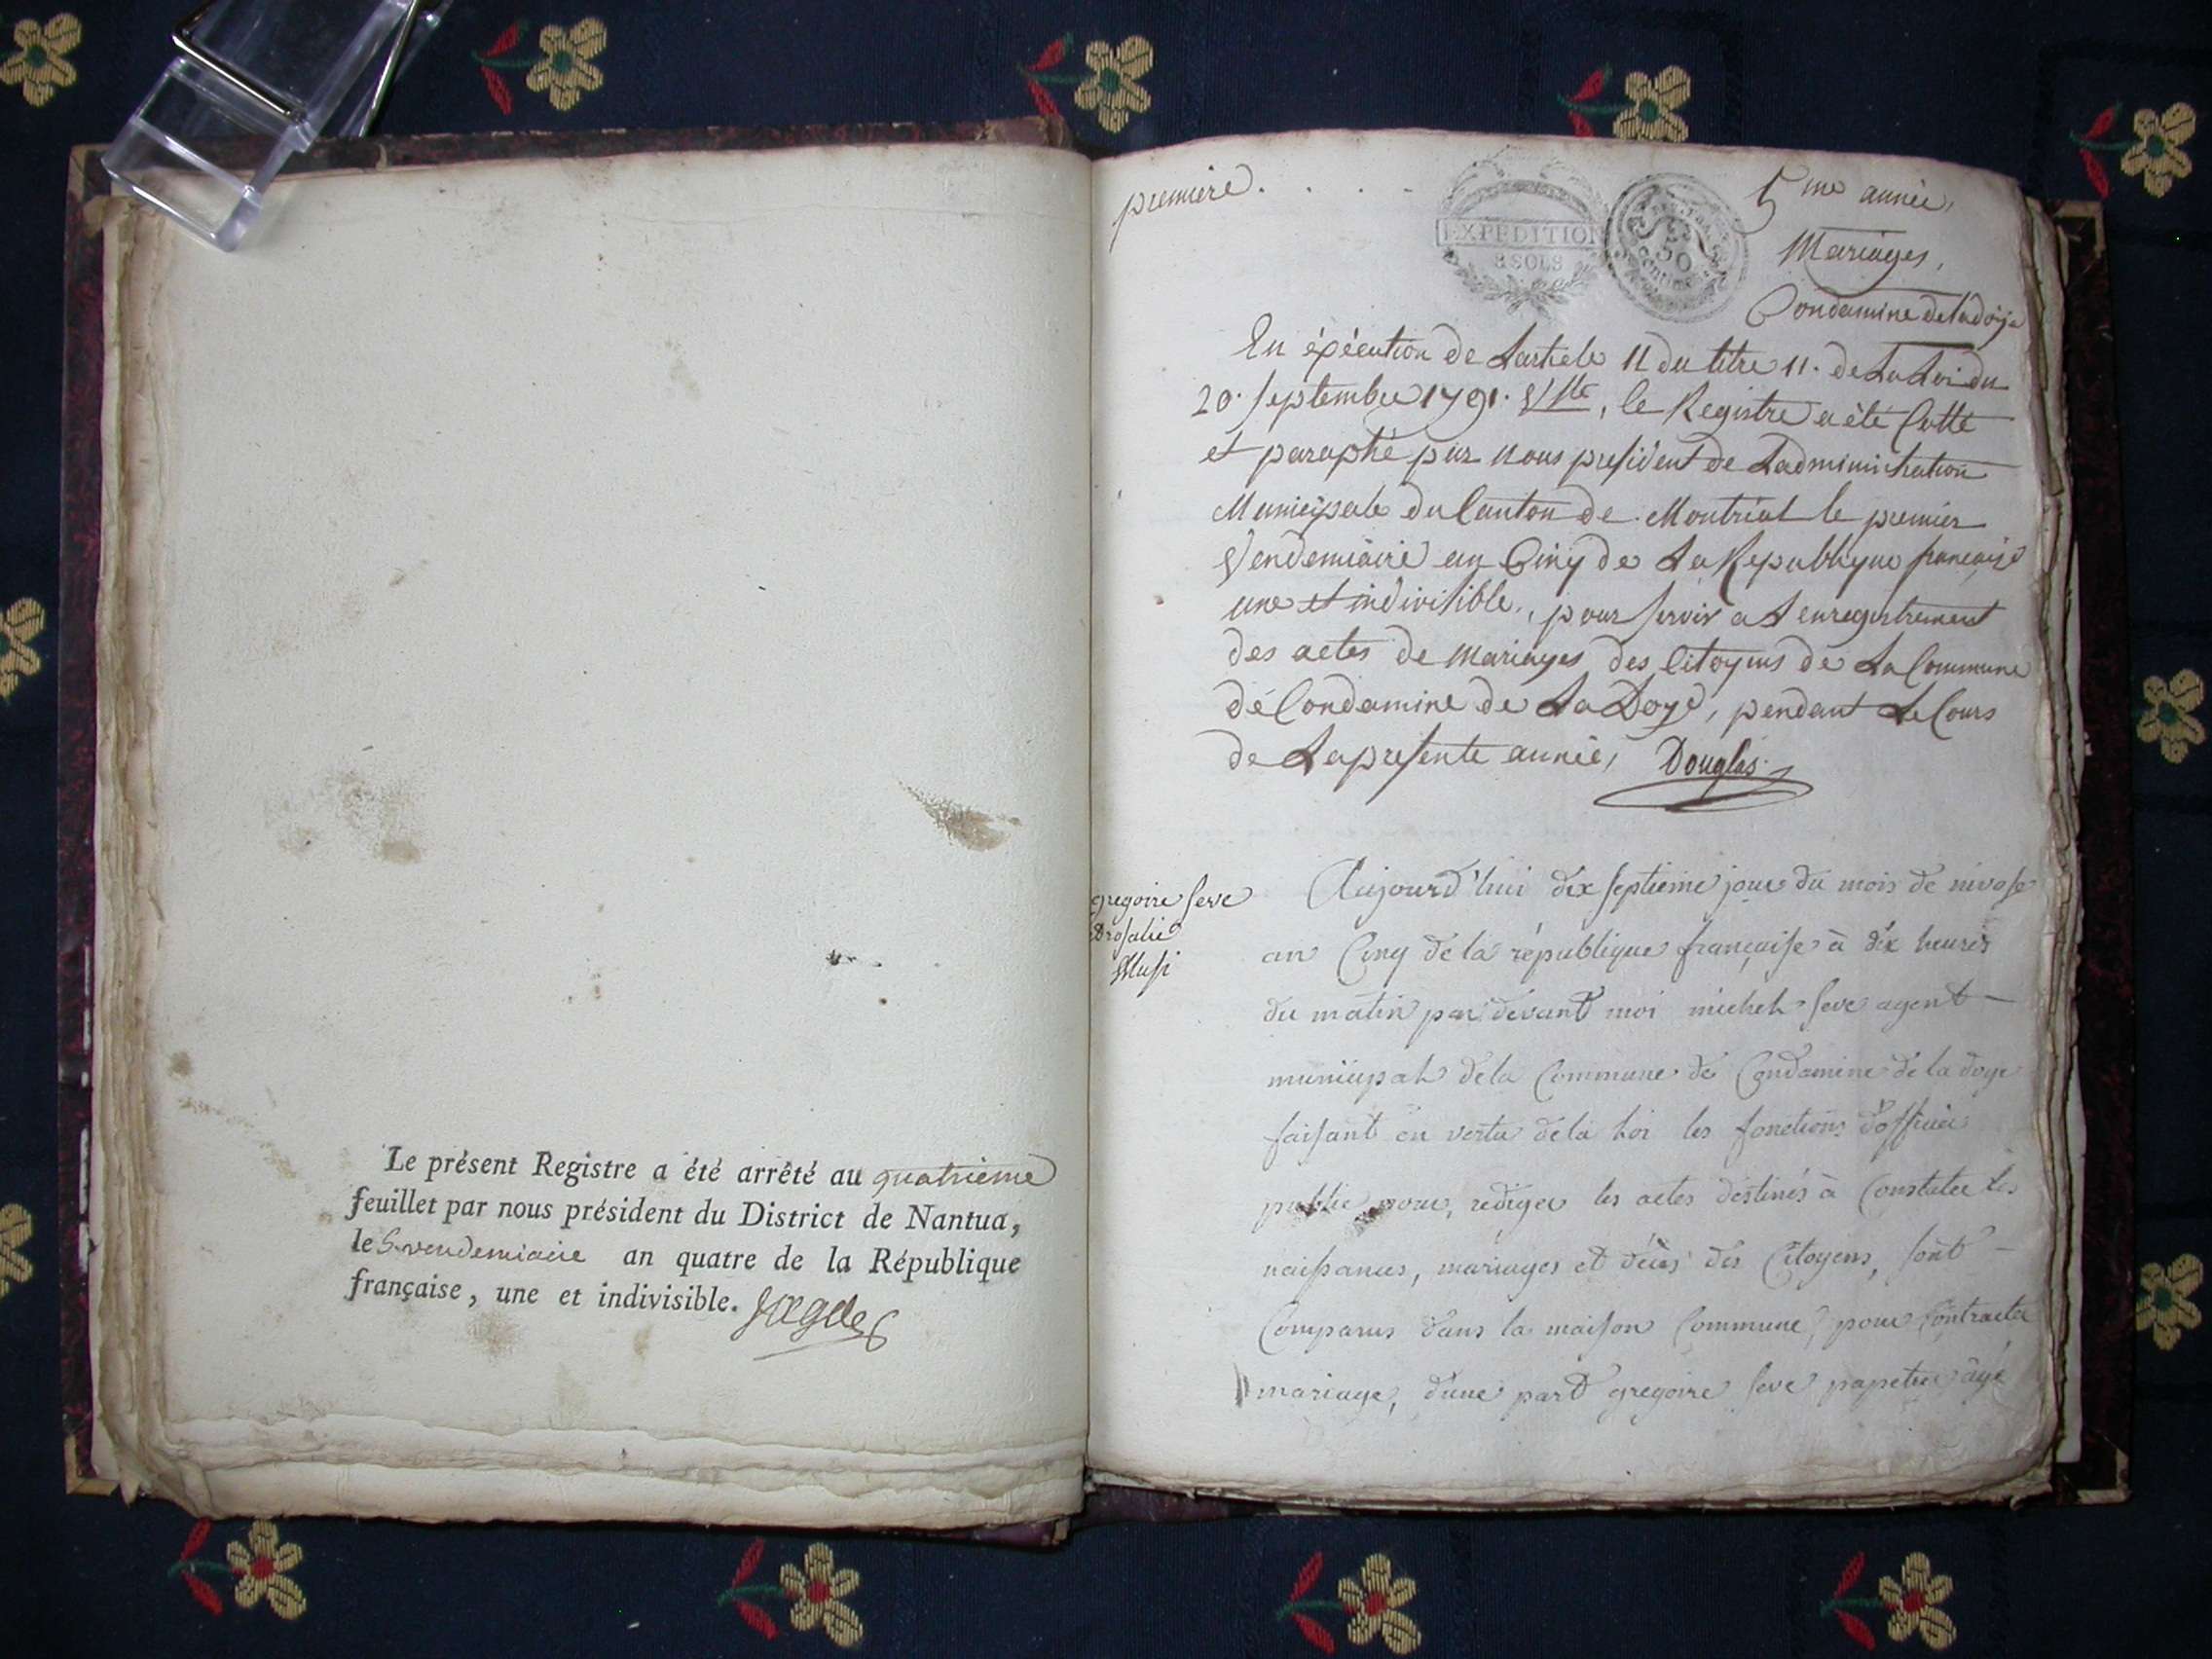 Le présent Registre a été arrêté au quatrieme
feuillet par nous président du District de Nantua,
le 5 vendemiaire an quatre de la République
française, une et indivisible.
premiere . . . .
EXPEDITION
8 SOLS
50
centimes
5me année,
Mariages,
Condamine de la doye
En éxécution de Larticle 11 du titre 11. de La Loi du
20. septembre 1791. , le Registre a été Cotté
et paraphé par nous president de Ladministration
Municipale du Canton de Montréal le premier
Vendemiaire an Cinq de La Republique francaise
une et indivisible, pour servir a Lenregistrement
des actes de Mariages des Citoyens de La Commune
de Condamine de La Doye, pendant Le Cours
de La presente année, Douglas
gregoire seve
et rosalie
Musi
Aujourd'hui dix septieme jour du mois de nivose
an Cinq de la république française à dix heures
du matin par devant moi michel seve agent
municipal de la Commune de Condamine de la doye
faisant en vertu de la Loi les fonctions d'officier
public pour, rediger les actes destinés à Constater les
naissances, mariages et décès des Citoyens, sont
Comparus dans la maison Commune, pour Contracter
mariage, d'une part gregoire seve papetier âgé